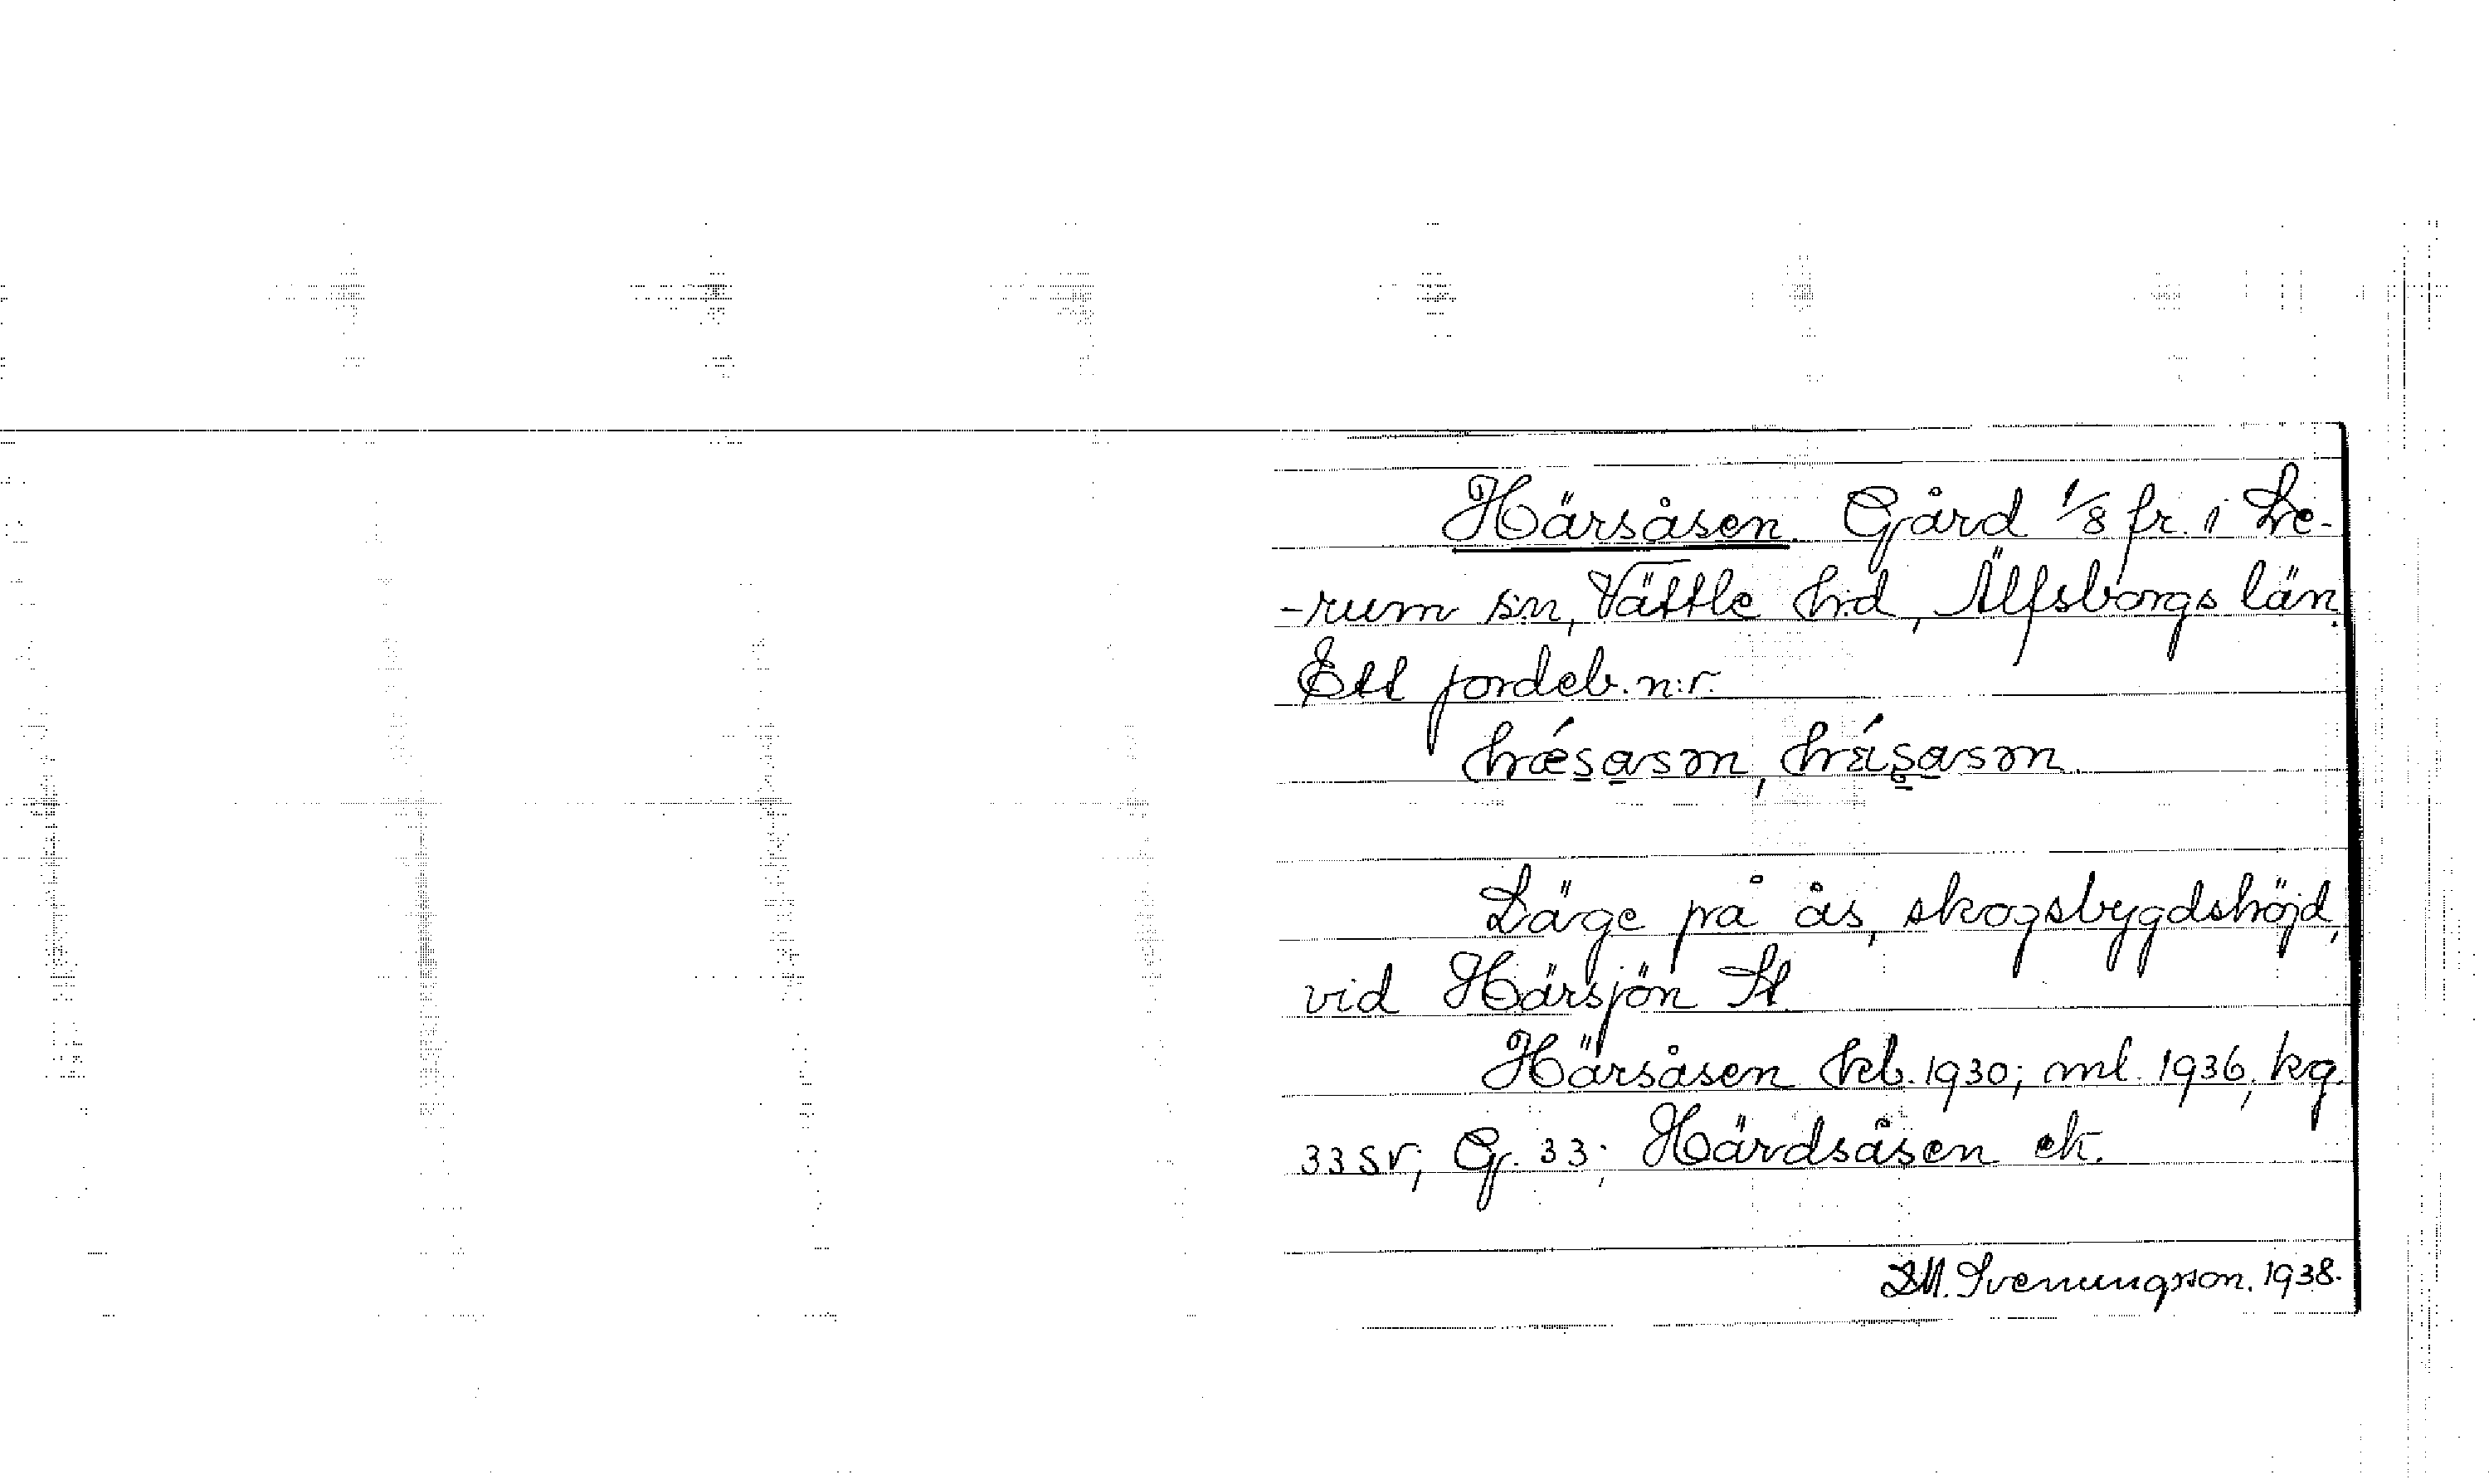 Härsåsen. Gård 1/8 fr. i Le-
-rum sn, Vättle hd, Älfsborgs län.
Ett jordeb. n:r.
Läge på ås, skogsbygdshöjd,
vid Härsjön St.
Härsåsen hfl. 1930; ml. 1936; kg.
33 sv; G. 33; Härdsåsen ek.
Svenungsson. 1938.